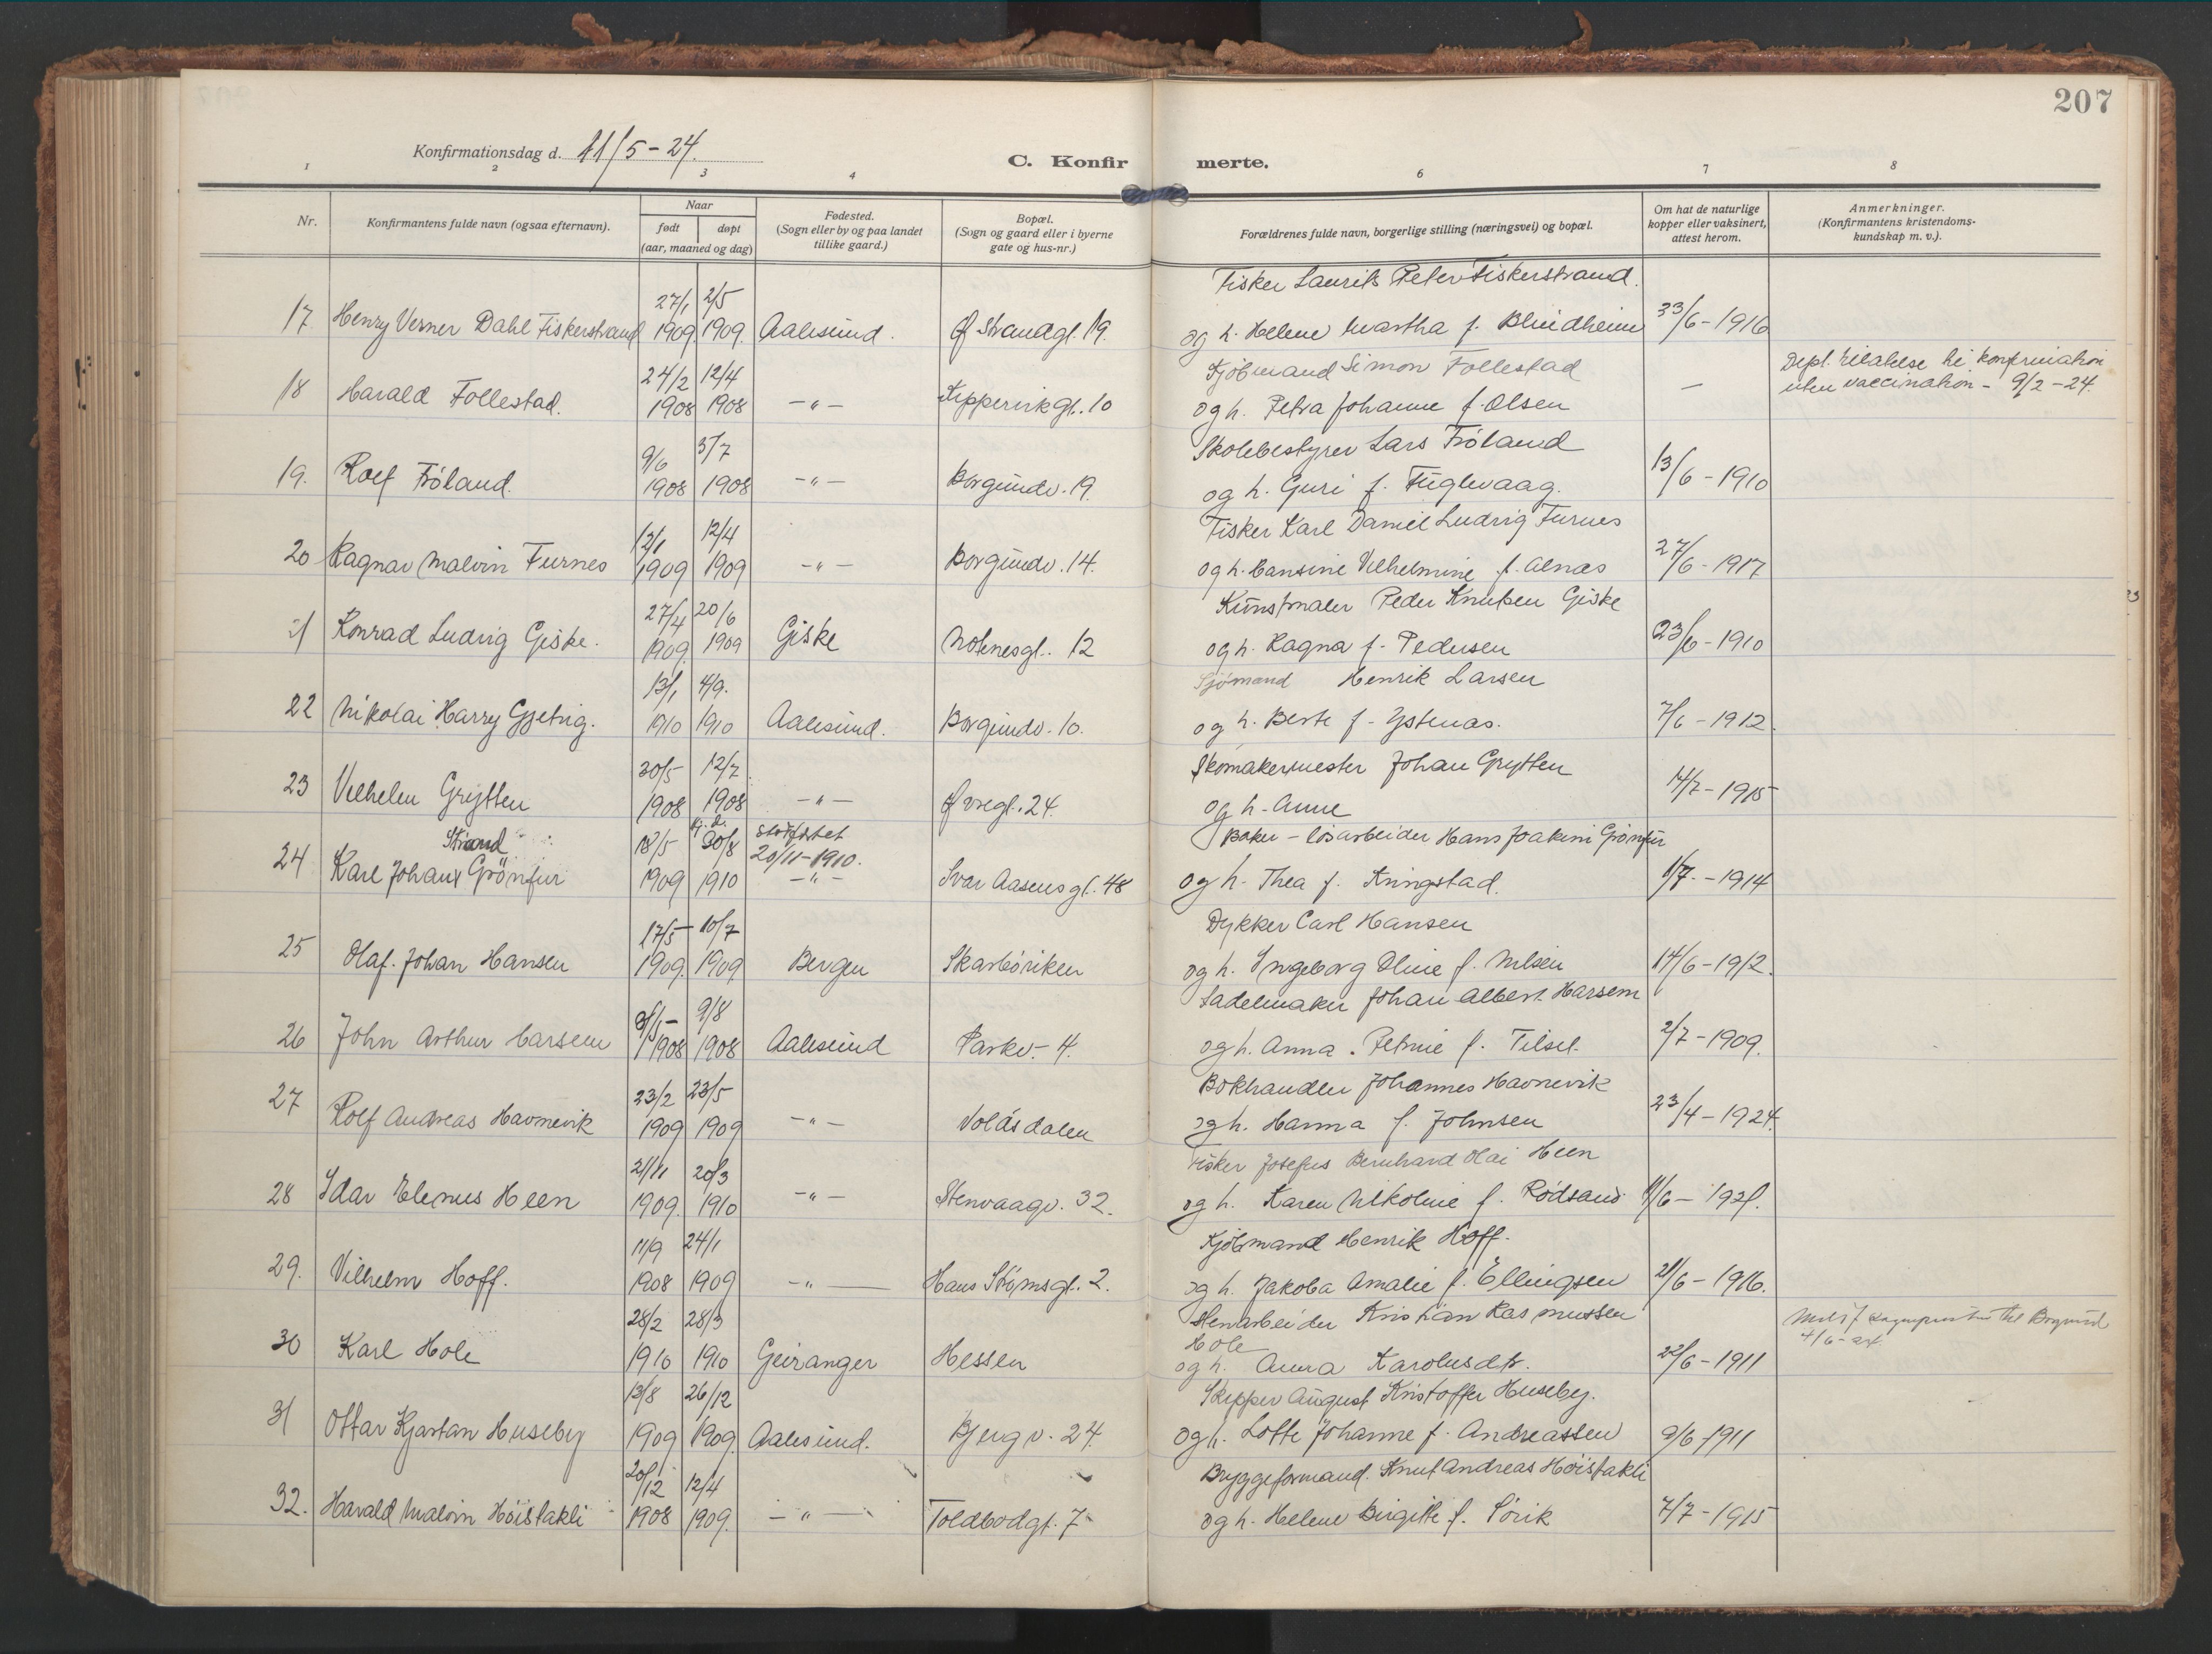 207
Konfirmationsdag d. 11/5-24.
C. Konfirmerte.
1 2 3 4 6 7 8
Nr. Konfirmantens fulde navn (ogsaa efternavn). Naar født døpt (aar, maaned og dag) Fødested. (Sogn eller by og paa landet tillike gaard.) Bopæl. (Sogn og gaard eller i byerne gate og hus-nr.) Forældrenes fulde navn, borgerlige stilling (næringsvei) og bopæl. Om hat de naturlige kopper eller vaksinert, attest herom. Anmerkninger. (Konfirmantens kristendoms-kundskap m. v.).
27/1 2/5 Fisker Laurits Peter Fiskerstrand.
17. Henry Verner Dahl Fiskerstrand 1909. 1909. Aalesund. Strandgt. 19. og h. Helene Martha f. Blindheim 23/6-1916
24/2 12/4 Kjöbmand Simon Follestad Dept. tillatelse til konfirmation
18 Harald Follestad. 1908 1908 -"- Kippervikgt. 10 og h. Petra Johanne f. Olsen — uten vaccination - 9/2-24.
9/6 3/7 Skolebestyrer Lars Fröland
19. Rolf Fröland. 1908 1908 -"- Borgundv. 19. og h. Guri f. Fuglevaag. 13/6-1910
12/1 12/4 Fisker Karl Daniel Ludvig Furnes
20 Ragnar Malvin Furnes 1909 1909 -"- Borgundv. 14. og h. Hansine Vilhelmine f. Alnæs 27/6-1917
27/4 20/6 Kunstmaler Peder Knutsen Giske
21 Konrad Ludvig Giske. 1909. 1909 Giske Notenesgt. 12 og h. Ragna f. Pedersen 23/6-1910
13/1 4/9. Sjömand Henrik Larsen
22 Nikolai Harry Gjetvig. 1910 1910 Aalesund. Borgundv. 10. og h. Berte f. Ystenæs. 7/6-1912.
30/5 12/7 Skomakermester Johan Grytten
23 Vilhelm Grytten 1908 1908 -"- Øvregt. 24. og h. Anne 14/7-1915
Strand 18/5 hj. d. 30/8 stadfæstet 20/11-1910. Baker - lösarbeider Hans Joakim Grönfur
24 Karl Johan Grönfur 1909 1910 -"- Ivar Aasensgt. 48 og h. Thea f. Kringstad. 1/7-1914
17/5 10/7 Dykker Carl Hansen
25 Olaf. Johan Hansen 1909. 1909 Bergen Skarböviken og h. Ingeborg Oline f. Nilsen 14/6-1912.
9/8 Sadelmaker Johan Albert Harsem
26 John Arthur Harsem 1908 1908 Aalesund Parkv. 4. og h. Anna. Petrine f. Tilset. 2/7-1909.
23/2 23/5 Bokhandler Johannes Havnevik
27 Rolf Andreas Havnevik 1909 1909 -"- Volåsdalen og h. Hanna f. Johnsen 23/4-1924.
21/11 20/3 Fisker Josefus Bernhard Olai Heen
28 Idar Elenus Heen 1909. 1910 -"- Stenvaagv. 32. og h. Karen Nikoline f. Rödsand 11/6-1921.
11/9 24/1 Kjöbmand Henrik Hoff.
29. Vilhelm Hoff. 1908 1909 -"- Hans Strömsgt. 2. og h. Jakoba Amalie f. Ellingsen 21/6-1916.
28/2 28/3 Stenarbeider Kristian Rasmussen Hole
30 Karl Hole 1910 1910 Geiranger Hessen og h. Anna Karolusdtr. 22/6-1911 til Borgund 4/6-24.
13/8 26/12 Skipper August Kristoffer Huseby.
31 Ottar Kjartan Huseby 1909 1909. Aalesund. Bjergv. 24. og h. Lotte Johanne f. Andreassen 9/6-1911
20/12 12/4 Bryggeformand. Knut Andreas Höistakli
32. Harald Malvin Höistakli 1908 1909. -"- Toldbodgt. 7 og h. Helene Birgitte f. Sörik 7/7-1915